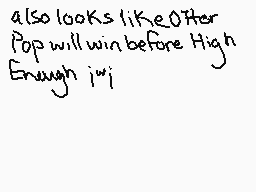 also looks like Otter
Pop will win before High
Enough ;w;